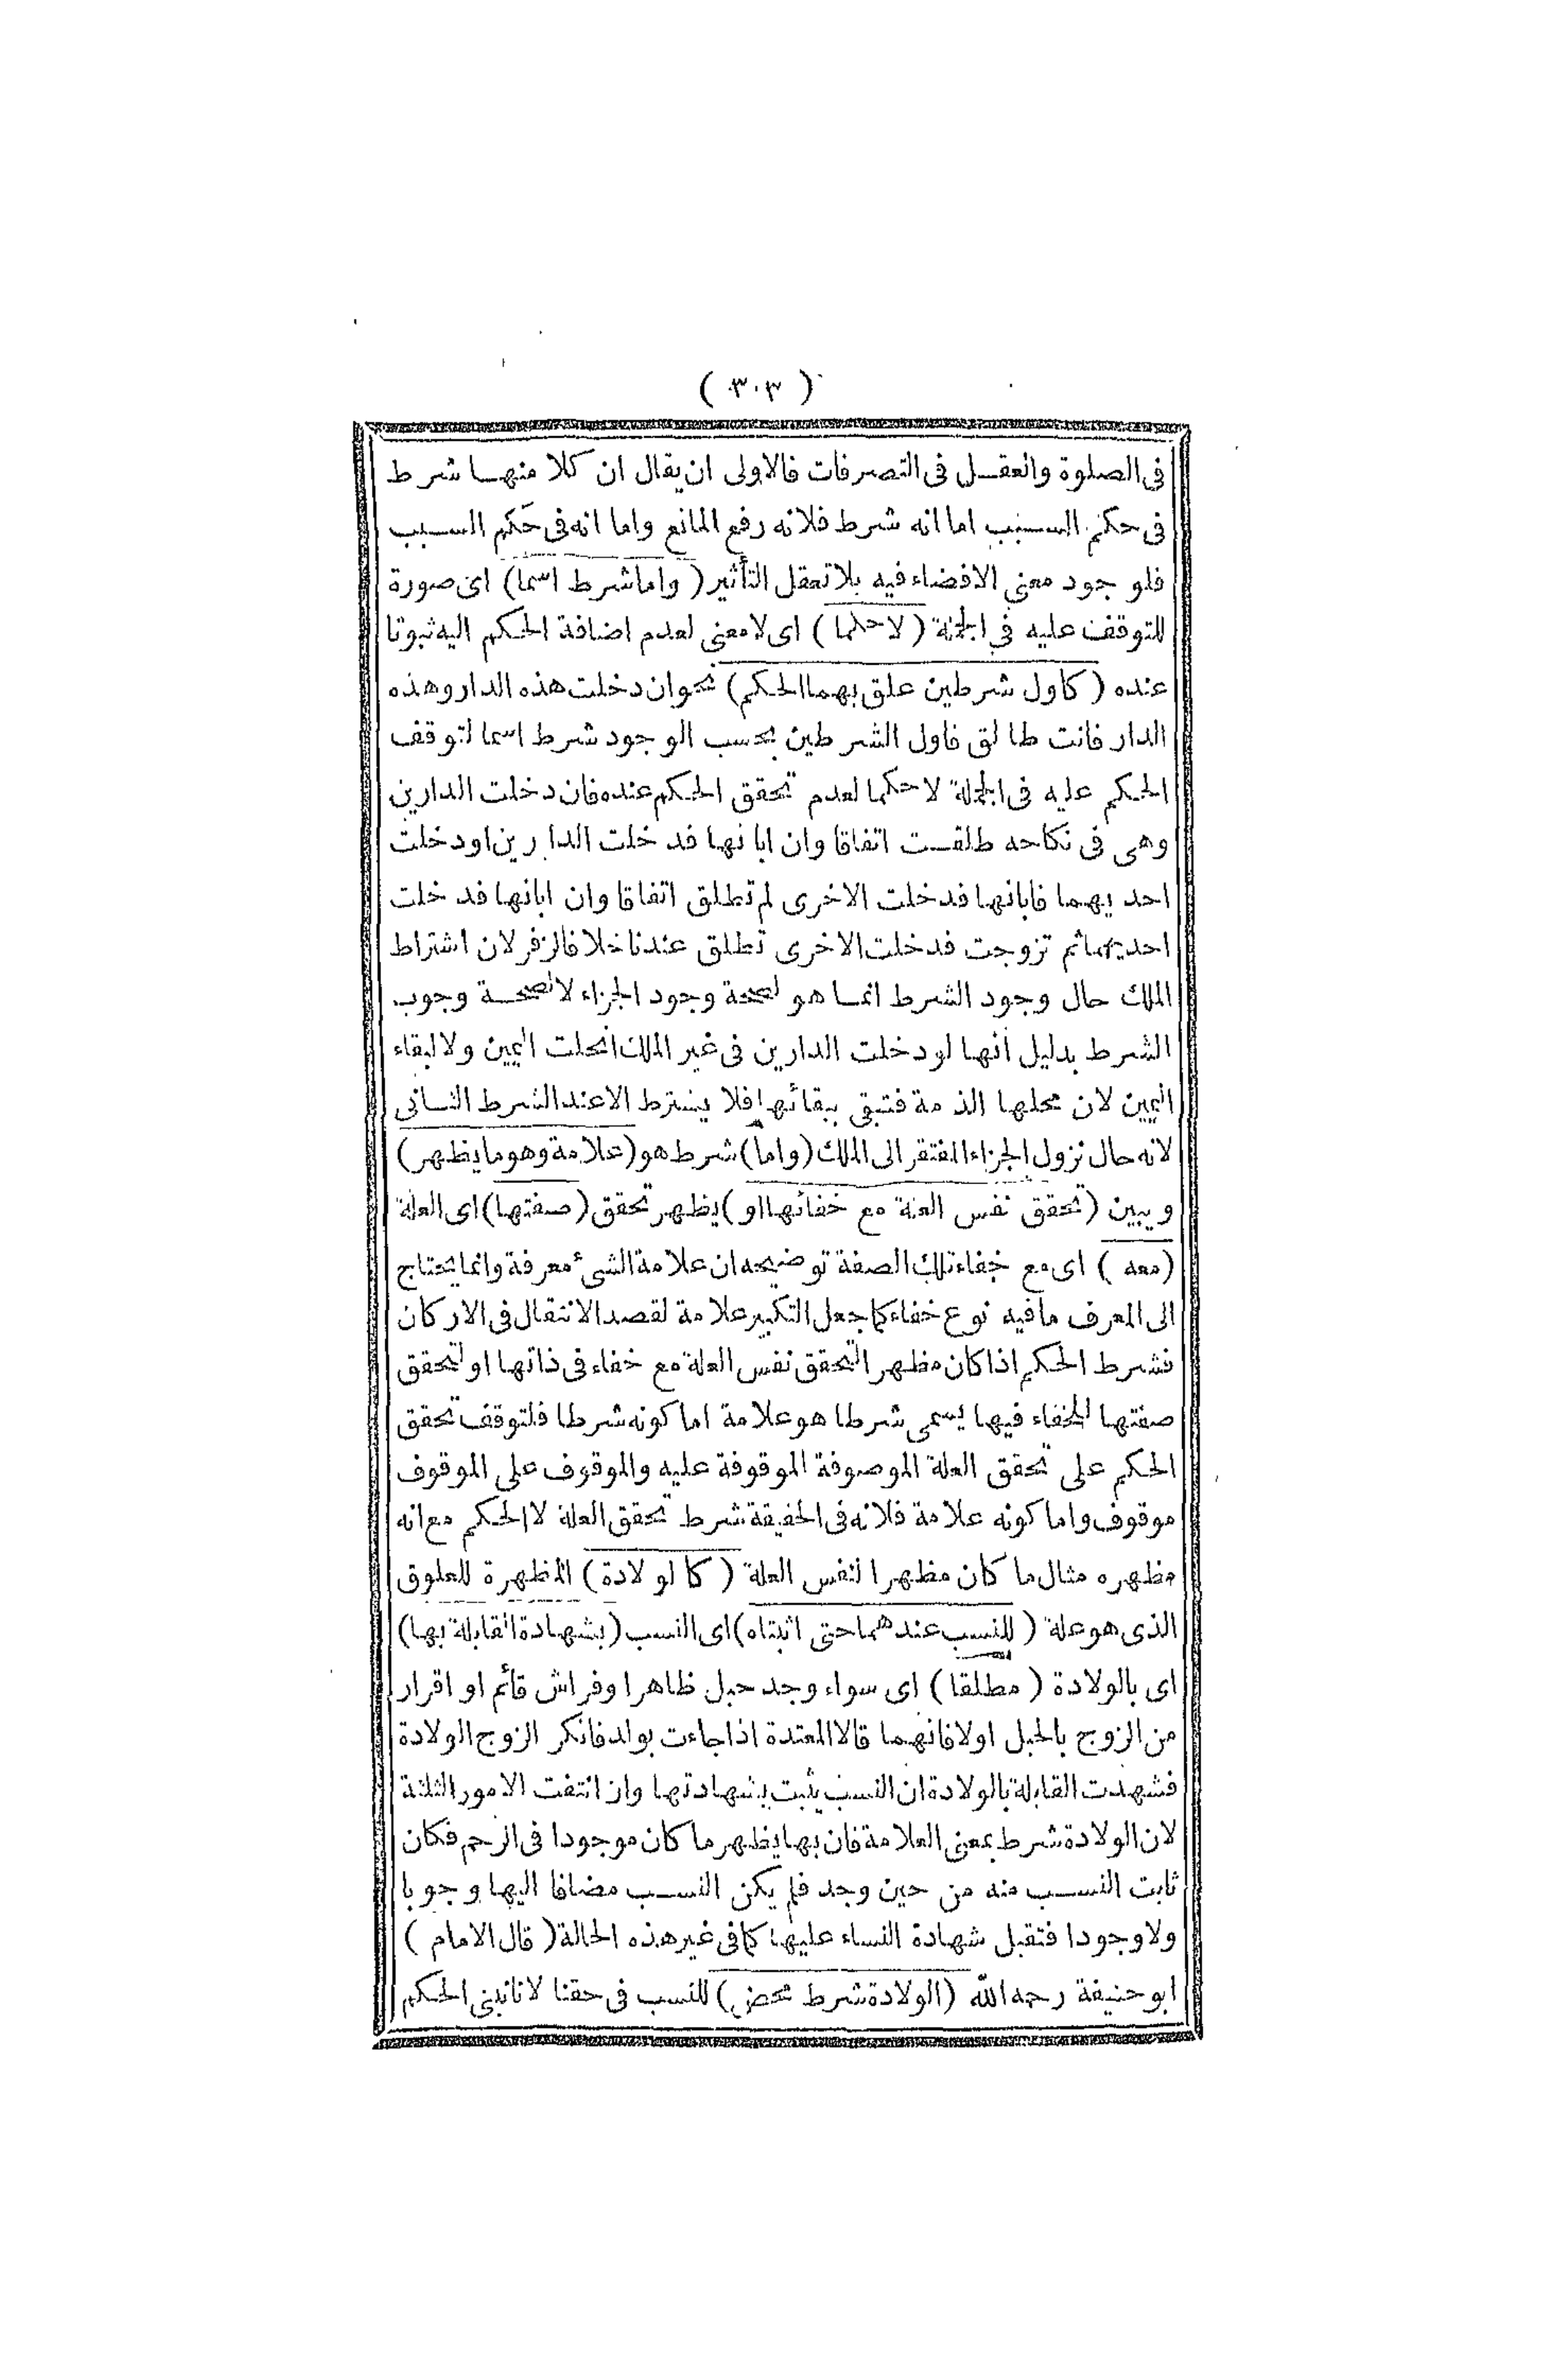 ( ٣٠٣ )
فى الصلوة والعقل فى التصرفات فالاولى ان يقال ان كلا منهما شرط
فى حكم السبب اما انه شرط فلانه رفع المانع واما انه فى حكم السبب
فلو جود معنى الافضاء فيه بلا تعقل التأثير ( واما شرط اسما) اى صورة
للتوقف عليه فى الجملة ( لا حكما ) اى لا معنى لعدم اضافة الحكم اليه ثبوتا
عنده ( كاول شرطين علق بهما الحكم) نحو ان دخلت هذه الدار وهذه
الدار فانت طالق فاول الشرطين بحسب الوجود شرط اسما لتوقف
الحكم عليه فى الجملة لا حكما لعدم تحقق الحكم عنده فان دخلت الدارين
وهى فى نكاحه طلقت اتفاقا وان ابانها فدخلت الدارين او دخلت
احديهما فابانها فدخلت الاخرى لم تطلق اتفاقا وان ابانها فدخلت
احديهما ثم تزوجت فدخلت الاخرى تطلق عندنا خلافا لزفر لان اشتراط
الملك حال وجود الشرط انما هو لصحة وجود الجزاء لا لصحة وجوب
الشرط بدليل انها لو دخلت الدارين فى غير الملك انحلت اليمين ولا لبقاء
اليمين لان محلها الذمة فتبقى ببقائها فلا يشترط الا عند الشرط الثانى
لانه حال نزول الجزاء المفتقر الى الملك (واما) شرط هو (علامة وهو ما يظهر)
ويبين ( تحقق نفس العلة مع خفائها او ) يظهر تحقق ( صفتها) اى العلة
( معه ) اى مع خفاء تلك الصفة توضيحه ان علامة الشئ معرفة وانما يحتاج
الى المعرف ما فيه نوع خفاء كما جعل التكبير علامة لقصد الانتقال فى الاركان
فشرط الحكم اذا كان مظهرا لتحقق نفس العلة مع خفاء فى ذاتها او لتحقق
صفتها لخفاء فيها يسمى شرطا هو علامة اما كونه شرطا فلتوقف تحقق
الحكم على تحقق العلة الموصوفة الموقوفة عليه والموقوف على الموقوف
موقوف واما كونه علامة فلانه فى الحقيقة شرط تحقق العلة لا الحكم مع انه
مظهره مثال ما كان مظهرا لنفس العلة ( كالولادة ) المظهرة للعلوق
الذى هو علة ( للنسب عندهما حتى اثبتاه) اى النسب (بشهادة القابلة بها)
اى بالولادة ( مطلقا ) اى سواء وجد حبل ظاهر او فراش قائم او اقرار
من الزوج بالحبل اولا فانهما قالا المعتدة اذا جاءت بولد فانكر الزوج الولادة
فشهدت القابلة بالولادة ان النسب يثبت بشهادتها وان انتفت الامور الثلثة
لان الولادة شرط بمعنى العلامة فان بها يظهر ما كان موجودا فى الرحم فكان
ثابت النسب منه من حين وجد فلم يكن النسب مضافا اليها وجوبا
ولا وجودا فتقبل شهادة النساء عليها كما فى غير هذه الحالة ( قال الامام )
ابو حنيفة رحمه الله ( الولادة شرط محض ) للنسب فى حقنا لانا نبنى الحكم